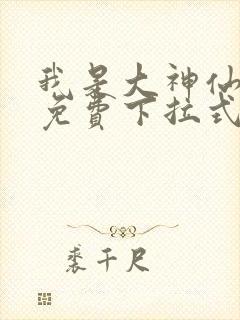 我是大神仙
免費下拉式
裘千尺